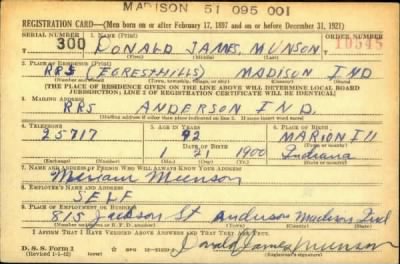 MADISON 51 095 001
REGISTRATION CARD—(Men born on or after February 17, 1897 and on or before December 31, 1921)
SERIAL NUMBER 1. NAME (Print) ORDER NUMBER
300 DONALD JAMES MUNSON 10548
2. PLACE OF RESIDENCE (Print)
RR5 (FORESTHILLS) MADISON IND
(THE PLACE OF RESIDENCE GIVEN ON THE LINE ABOVE WILL DETERMINE LOCAL BOARD
JURISDICTION; LINE 2 OF REGISTRATION CERTIFICATE WILL BE IDENTICAL)
3. MAILING ADDRESS
RR5 ANDERSON IND.
(Mailing address if other than place indicated on line 2. If same insert word same)
4. TELEPHONE 5. AGE IN YEARS 6. PLACE OF BIRTH
25717 42 MARION
DATE OF BIRTH
1 21 1900 Indiana
(Exchange) (Number) (Mo.) (Day) (Yr.) (State or country)
7. NAME AND ADDRESS OF PERSON WHO WILL ALWAYS KNOW YOUR ADDRESS
Munson
8. EMPLOYER'S NAME AND ADDRESS
SELF
9. PLACE OF EMPLOYMENT OR BUSINESS
815 Jackson St Anderson Madison Ind
I AFFIRM THAT I HAVE VERIFIED ABOVE ANSWERS AND THAT THEY ARE TRUE.
D. S. S. Form 1
(Revised 1-1-42) Donald James Munson